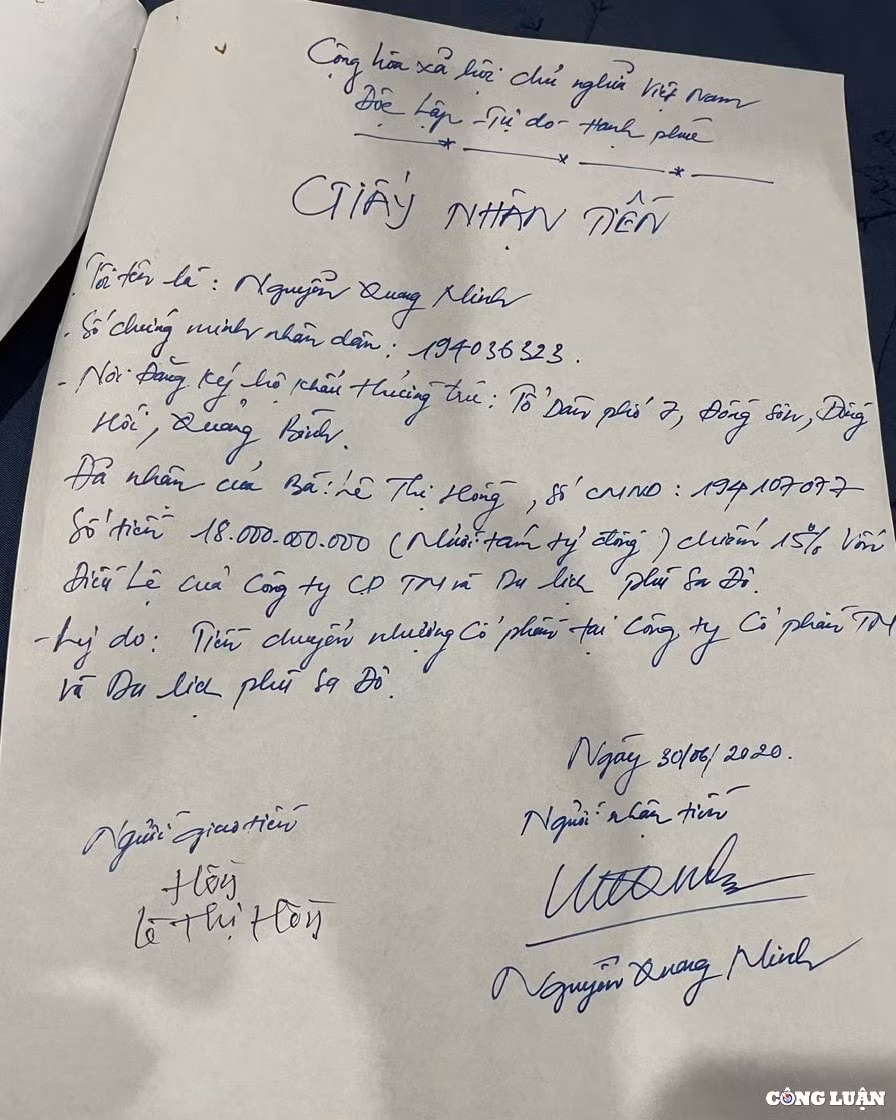 Cộng hòa xả hội chủ nghỉa Việt Nam
Độc Lập - Tự do - Hạnh phúc
GIẤY NHẬN TIỀN
Tôi tên là : Nguyễn Quang Minh
- Số chứng minh nhân dân : 194036323.
- Nơi Đăng Ký hộ khẩu thường trú : Tổ Dân phố 7, Đồng Sơn, Đồng
Hới, Quảng Bình.
Đả nhận của Bà : Lê Thị Hồng, Số CMND : 194107077
Số tiền : 18.000.000.000 (Mười tám tỷ đồng) chiếm 15% Vốn
Điều Lệ của Công ty CP TM và Du lịch phú Sa Đô.
- Lý do : Tiền chuyển nhượng Cổ phần tại Công ty Cổ phần TM
và Du lịch phú Sa Đô.
Ngày 30/06/2020.
Người giao tiền
Người nhận tiền
Hồng
Lê Thị Hồng
Nguyễn Quang Minh
CÔNG LUẬN